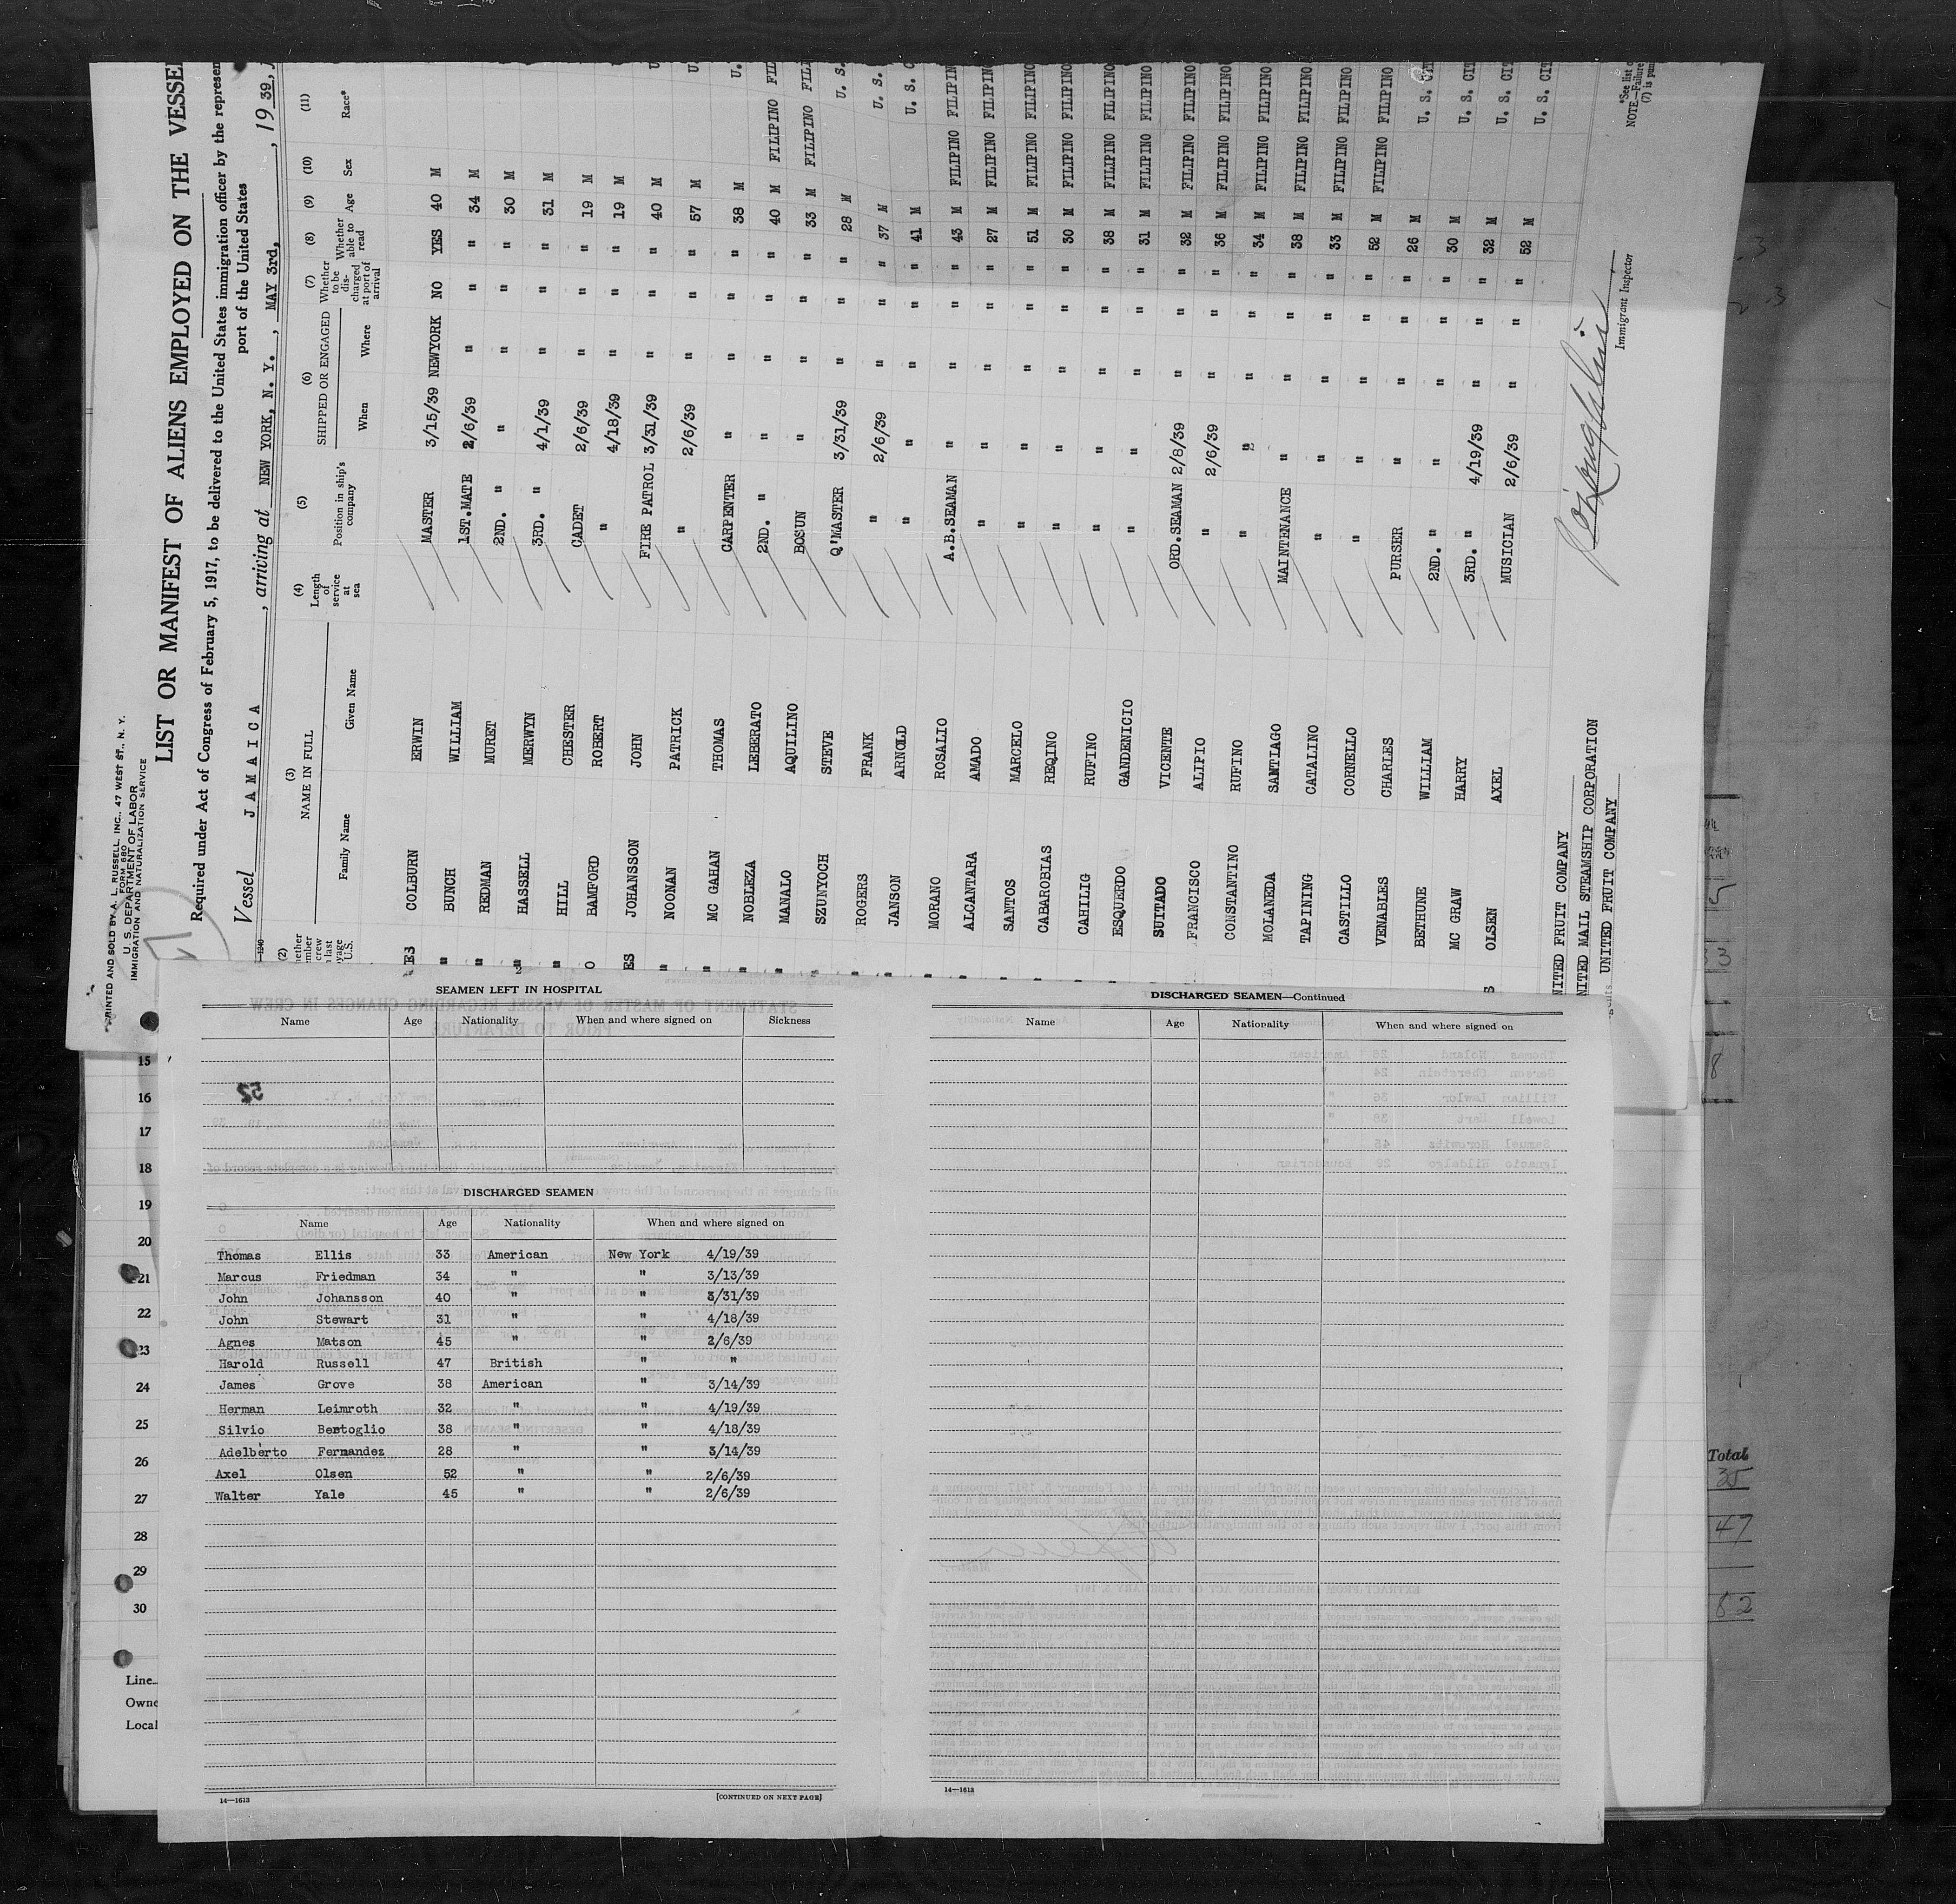 PRINTED AND SOLD BY A. L. RUSSELL, INC., 47 WEST ST., N. Y.
FORM 680
U. S. DEPARTMENT OF LABOR
IMMIGRATION AND NATURALIZATION SERVICE
LIST OR MANIFEST OF ALIENS EMPLOYED ON THE VESSE
Required under Act of Congress of February 5, 1917, to be delivered to the United States immigration officer by the represen
port of the United States
Vessel JAMAICA , arriving at NEW YORK, N. Y. , MAY 3rd, , 1939,
(2) (3) (4) (5) (6) (7) (8) (9) (10) (11)
NAME IN FULL Length of service at sea Position in ship's company SHIPPED OR ENGAGED Whether to be discharged at port of arrival Whether able to read Age Sex Race*
Family Name Given Name When Where
COLBURN ERWIN MASTER 3/15/39 NEWYORK NO YES 40 M
" BUNCH WILLIAM 1ST.MATE 2/6/39 " " " 34 M
" REDMAN MURET 2ND. " " " " " 30 M
HASSELL MERWYN 3RD. " 4/1/39 " " " 31 M
" HILL CHESTER CADET 2/6/39 " " " 19 M
BAMFORD ROBERT " 4/18/39 " " " 19 M
ES JOHANSSON JOHN FIRE PATROL 3/31/39 " " " 40 M U
" NOONAN PATRICK " 2/6/39 " " " 57 M U.
" MC GAHAN THOMAS CARPENTER " " " " 38 M U.
" NOBLEZA LEBERATO 2ND. " " " " " 40 M FILIPINO FIL
" MANALO AQUILINO BOSUN " " " " 33 M FILIPINO FILI
" SZUNYOCH STEVE Q'MASTER 3/31/39 " " " 28 M U. S.
" ROGERS FRANK " 2/6/39 " " " 37 M U. S.
" JANSON ARNOLD " " " " " 41 M U. S. C
" MORANO ROSALIO A.B.SEAMAN " " " " 43 M FILIPINO FILIPIN
" ALCANTARA AMADO " " " " " 27 M FILIPINO FILIPIN
" SANTOS MARCELO " " " " " 51 M FILIPINO FILIPINO
" CABAROBIAS REQINO " " " " " 30 M FILIPINO FILIPINO
CAHILIG RUFINO " " " " " 38 M FILIPINO FILIPINO
ESQUERDO GANDENICIO " " " " " 31 M FILIPINO FILIPINO
SUITADO VICENTE ORD.SEAMAN 2/8/39 " " " 32 M FILIPINO FILIPINO
FRANCISCO ALIPIO " 2/6/39 " " " 36 M FILIPINO FILIPINO
CONSTANTINO RUFINO " " " " " 34 M FILIPINO FILIPINO
MOLANEDA SANTIAGO MAINTENANCE " " " " 38 M FILIPINO FILIPINO
TAPINING CATALINO " " " " " 33 M FILIPINO FILIPINO
CASTILLO CORNELLO " " " " " 52 M FILIPINO FILIPINO
VENABLES CHARLES PURSER " " " " 26 M U. S. CIT
BETHUNE WILLIAM 2ND. " " " " " 30 M U. S. CIT
MC GRAW HARRY 3RD. " 4/19/39 " " " 32 M U. S. CIT
S OLSEN AXEL MUSICIAN 2/6/39 " " " 52 M U. S. CIT
NITED FRUIT COMPANY
NITED MAIL STEAMSHIP CORPORATION
UNITED FRUIT COMPANY
Immigrant Inspector
*See list o
NOTE.—Failure
(7) is pun
SEAMEN LEFT IN HOSPITAL
Name Age Nationality When and where signed on Sickness
DISCHARGED SEAMEN
Name Age Nationality When and where signed on
Thomas Ellis 33 American New York 4/19/39
Marcus Friedman 34 " " 3/13/39
John Johansson 40 " " 3/31/39
John Stewart 31 " " 4/18/39
Agnes Matson 45 " " 2/6/39
Harold Russell 47 British " "
James Grove 38 American " 3/14/39
Herman Leimroth 32 " " 4/19/39
Silvio Bertoglio 38 " " 4/18/39
Adelberto Fernandez 28 " " 3/14/39
Axel Olsen 52 " " 2/6/39
Walter Yale 45 " " 2/6/39
14—1613 [CONTINUED ON NEXT PAGE]
DISCHARGED SEAMEN—Continued
Name Age Nationality When and where signed on
14—1613
15
16
17
18
19
20
21
22
23
24
25
26
27
28
29
30
Line
Owne
Local
Total
35
47
82